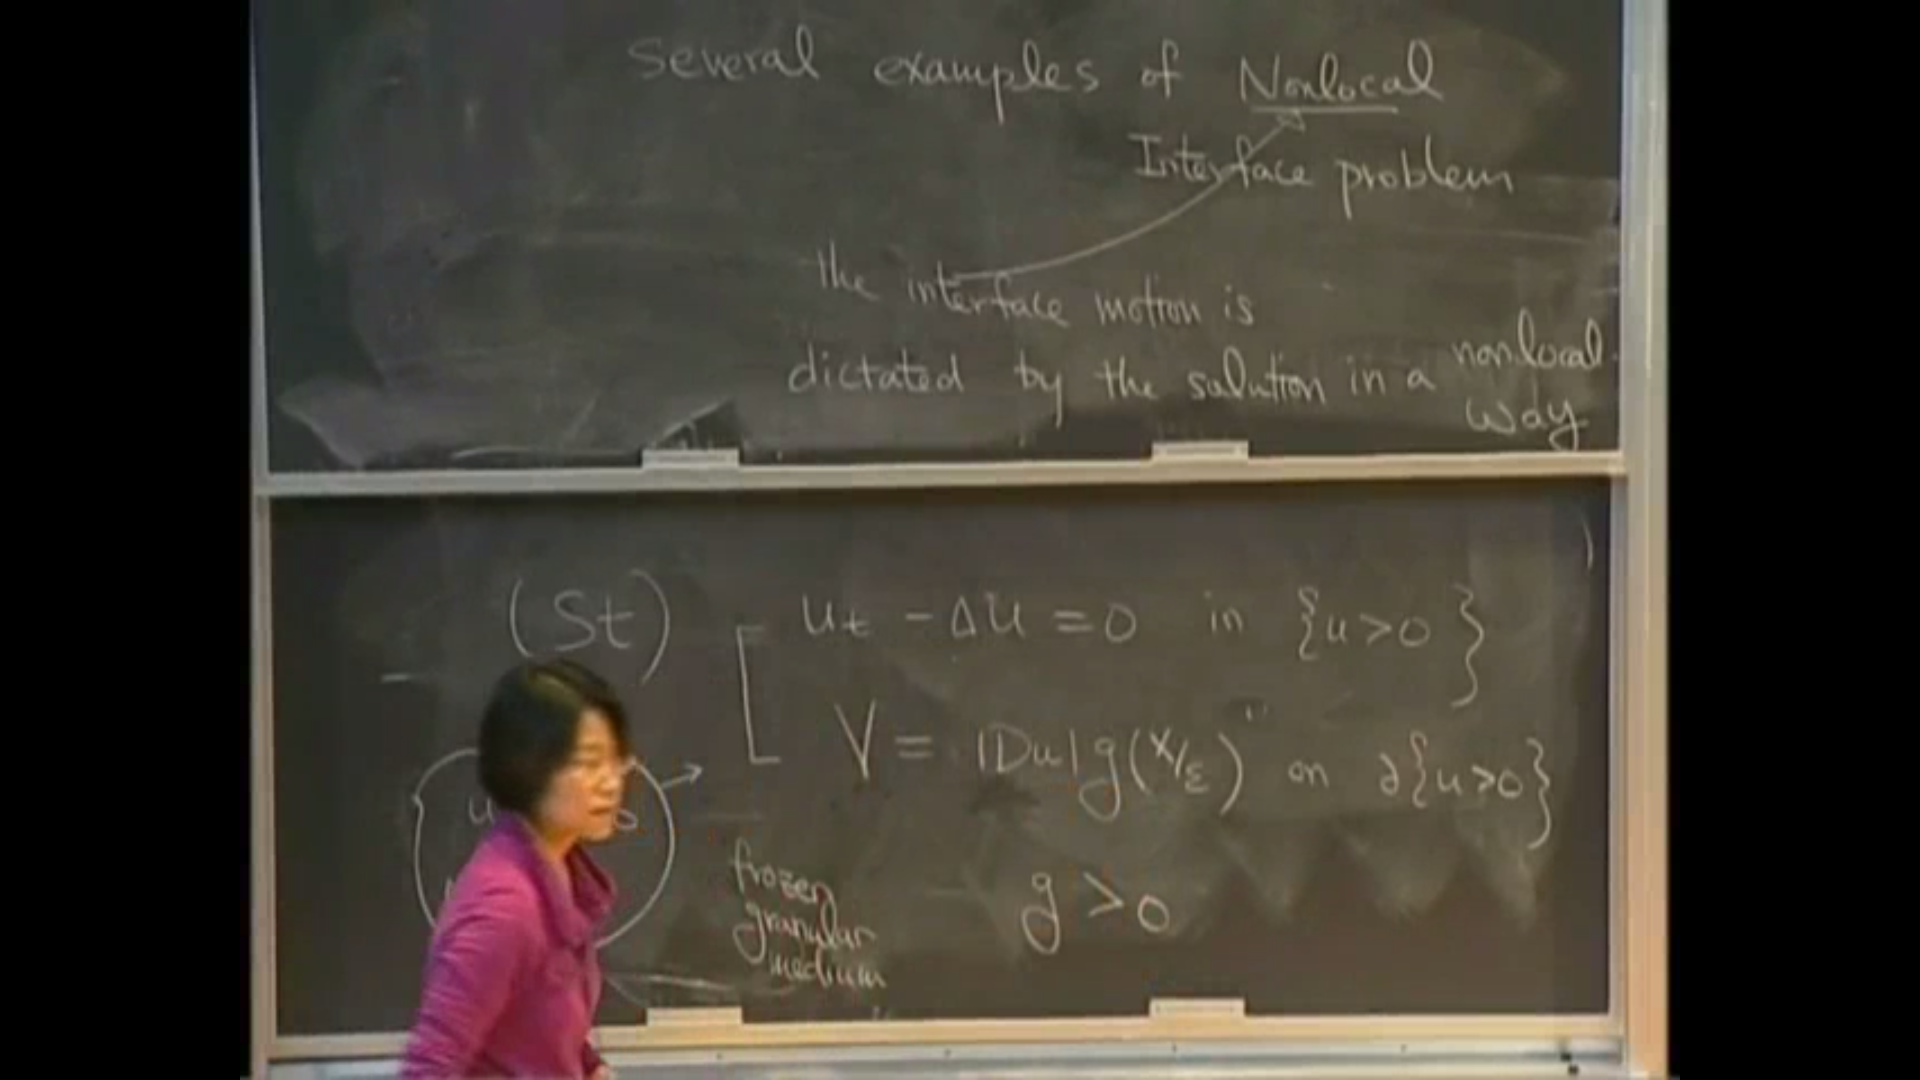 Several examples of Nonlocal
Interface problem
the interface motion is
dictated by the solution in a nonlocal
way
(St)
u_t - Δu = 0 in {u>0}
V = |Du| g(x/ε) on ∂{u>0}
u
frozen
granular
medium
g > 0